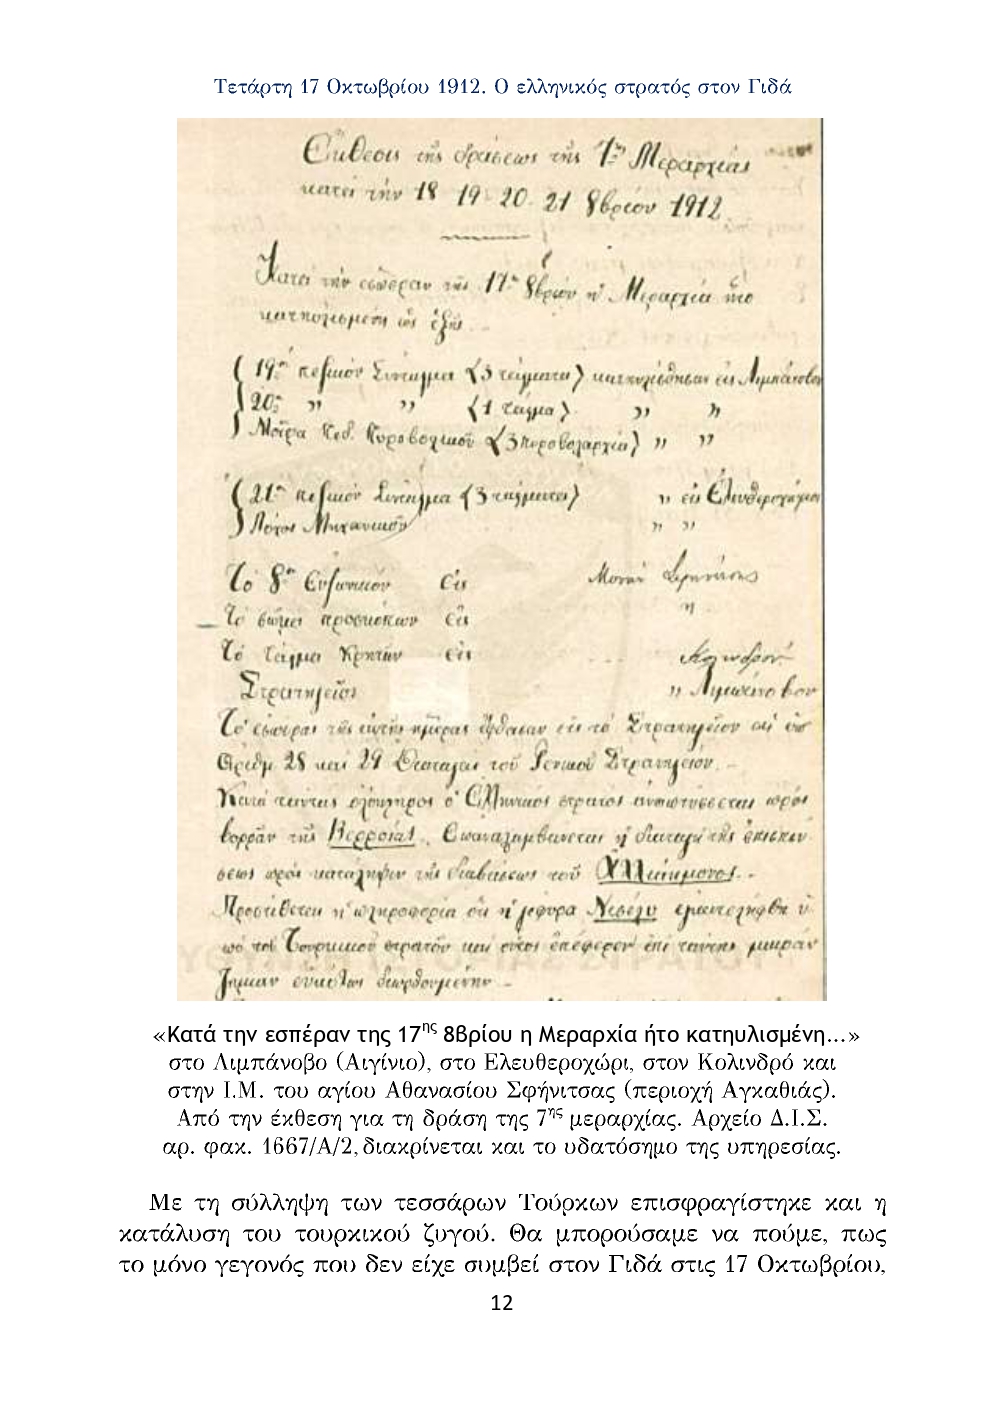 Τετάρτη 17 Οκτωβρίου 1912. Ο ελληνικός στρατός στον Γιδά
Ἔκθεσις τῆς δράσεως τῆς 7ης Μεραρχίας
κατά τήν 18 19 20 21 8βρίου 1912
Κατά τήν ἑσπέραν τῆς 17ης 8βρίου ἡ Μεραρχία ἦτο
κατηυλισμένη ὡς ἑξῆς
19ον πεζικόν Σύνταγμα (3 τάγματα) κατηυλίσθησαν εἰς Λιμπάνοβον
20ον " " (1 τάγμα) " "
Μοῖρα Πεδ. Πυροβολικοῦ (3 πυροβολαρχίαι) " "
21ον πεζικόν Σύνταγμα (3 τάγματα) " εἰς Ἐλευθεροχώριον
Λόχος Μηχανικοῦ " "
Τό 8ον Εὐζωνικόν εἰς Μονήν
Τό σῶμα προσκόπων εἰς "
Τό τάγμα Κρητῶν εἰς Κολινδρόν
Στρατηγεῖον " Λιμπάνοβον
Τό ἑσπέρας τῆς αὐτῆς ἡμέρας ἔφθασαν εἰς τό Στρατηγεῖον αἱ ὑπ'
ἀριθμ 28 καί 29 Διαταγαί τοῦ Γενικοῦ Στρατηγείου. -
Κατά ταύτας ὁλόκληρος ὁ Ἑλληνικός στρατός ἀναπτύσσεται πρός
βορρᾶν τῆς Βερροίας. Ἐπαναλαμβάνεται ἡ διαταγή τῆς ἐπισπεύ
σεως πρός κατάληψιν τῆς διαβάσεως τοῦ Ἁλιάκμονος. -
Προστίθεται ἡ πληροφορία ὅτι ἡ γέφυρα Νεσέλυ ἐγκατελήφθη ὑ
πό τοῦ Τουρκικοῦ στρατοῦ καί οὗτος ἐπέφερον ἐπί ταύτης μικράν
ζημίαν εὐκόλως διορθουμένην -
«Κατά την εσπέραν της 17ης 8βρίου η Μεραρχία ήτο κατηυλισμένη...»
στο Λιμπάνοβο (Αιγίνιο), στο Ελευθεροχώρι, στον Κολινδρό και
στην Ι.Μ. του αγίου Αθανασίου Σφήνιτσας (περιοχή Αγκαθιάς).
Από την έκθεση για τη δράση της 7ης μεραρχίας. Αρχείο Δ.Ι.Σ.
αρ. φακ. 1667/Α/2, διακρίνεται και το υδατόσημο της υπηρεσίας.
Με τη σύλληψη των τεσσάρων Τούρκων επισφραγίστηκε και η
κατάλυση του τουρκικού ζυγού. Θα μπορούσαμε να πούμε, πως
το μόνο γεγονός που δεν είχε συμβεί στον Γιδά στις 17 Οκτωβρίου,
12